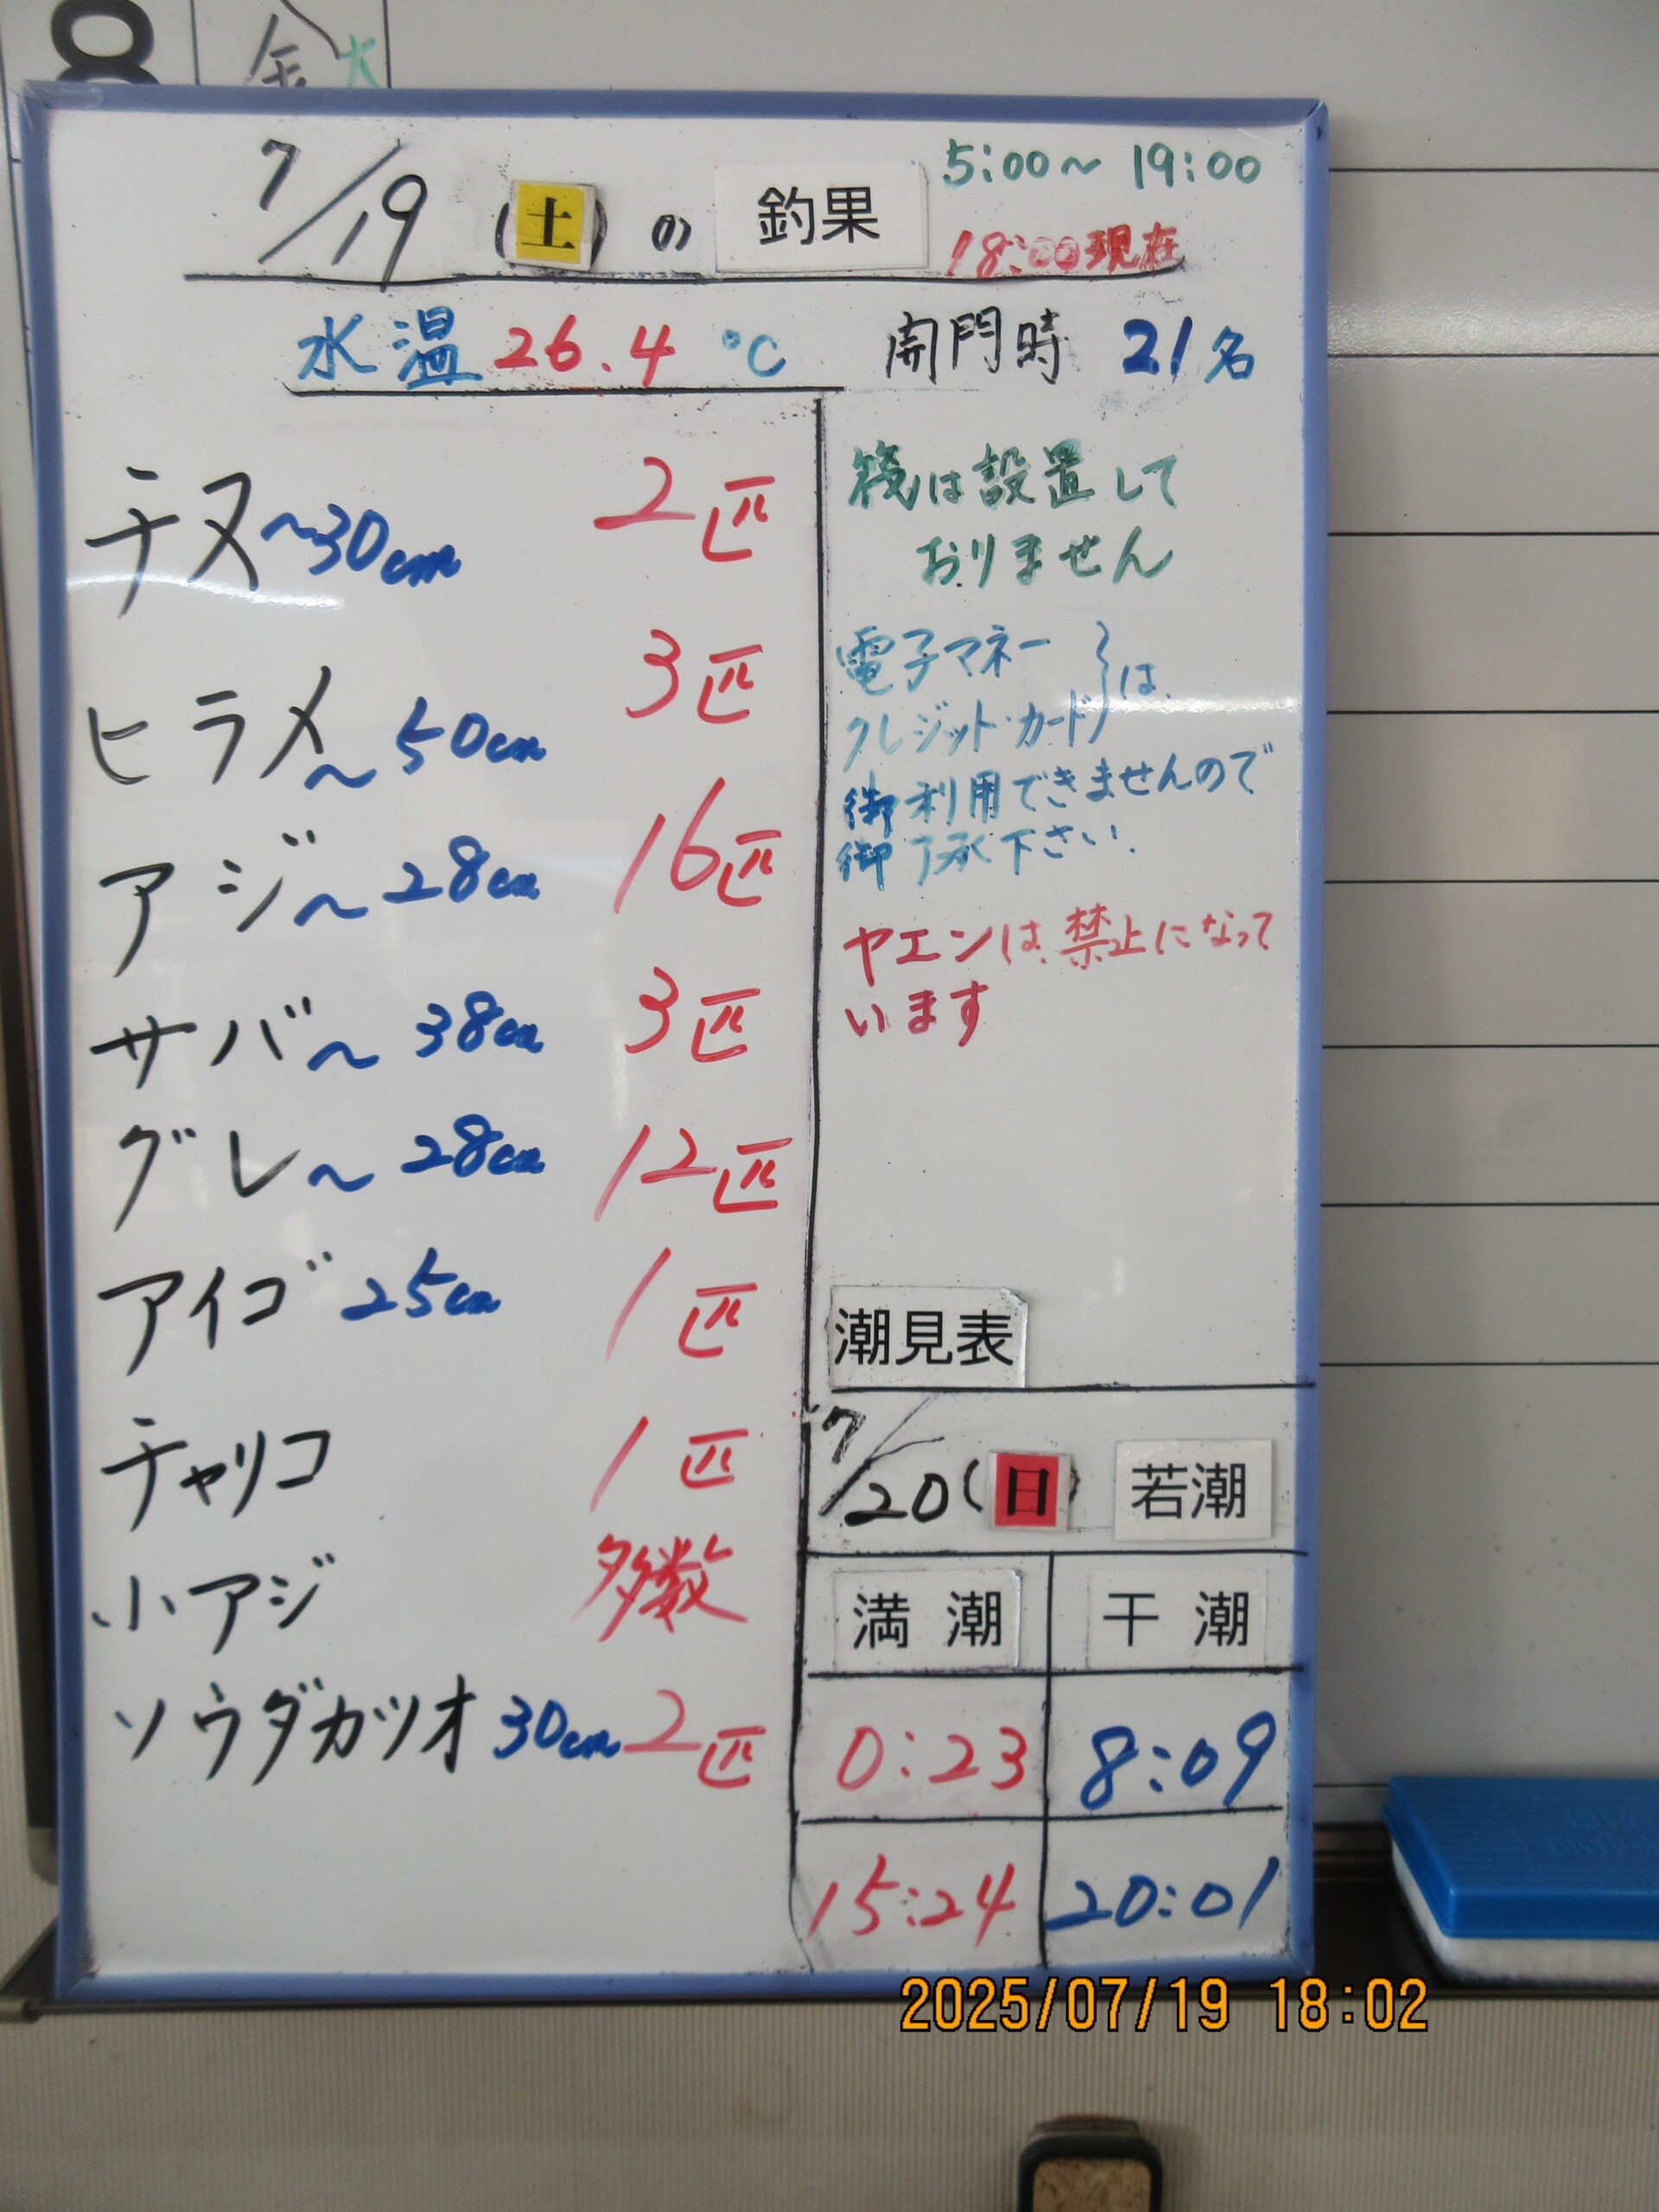 8 金 大
7/19 (土) の 釣果 5:00～19:00
18:00現在
水温 26.4 ℃ 開門時 21名
チヌ～30cm 2匹
ヒラメ～50cm 3匹
アジ～28cm 16匹
サバ～38cm 3匹
グレ～28cm 12匹
アイゴ 25cm 1匹
チャリコ 1匹
小アジ 多数
ソウダカツオ 30cm 2匹
筏は設置して
おりません
電子マネー
クレジット・カード}は
御利用できませんので
御了承下さい.
ヤエンは禁止になって
います
潮見表
7/20(日) 若潮
満潮 干潮
0:23 8:09
15:24 20:01
2025/07/19 18:02